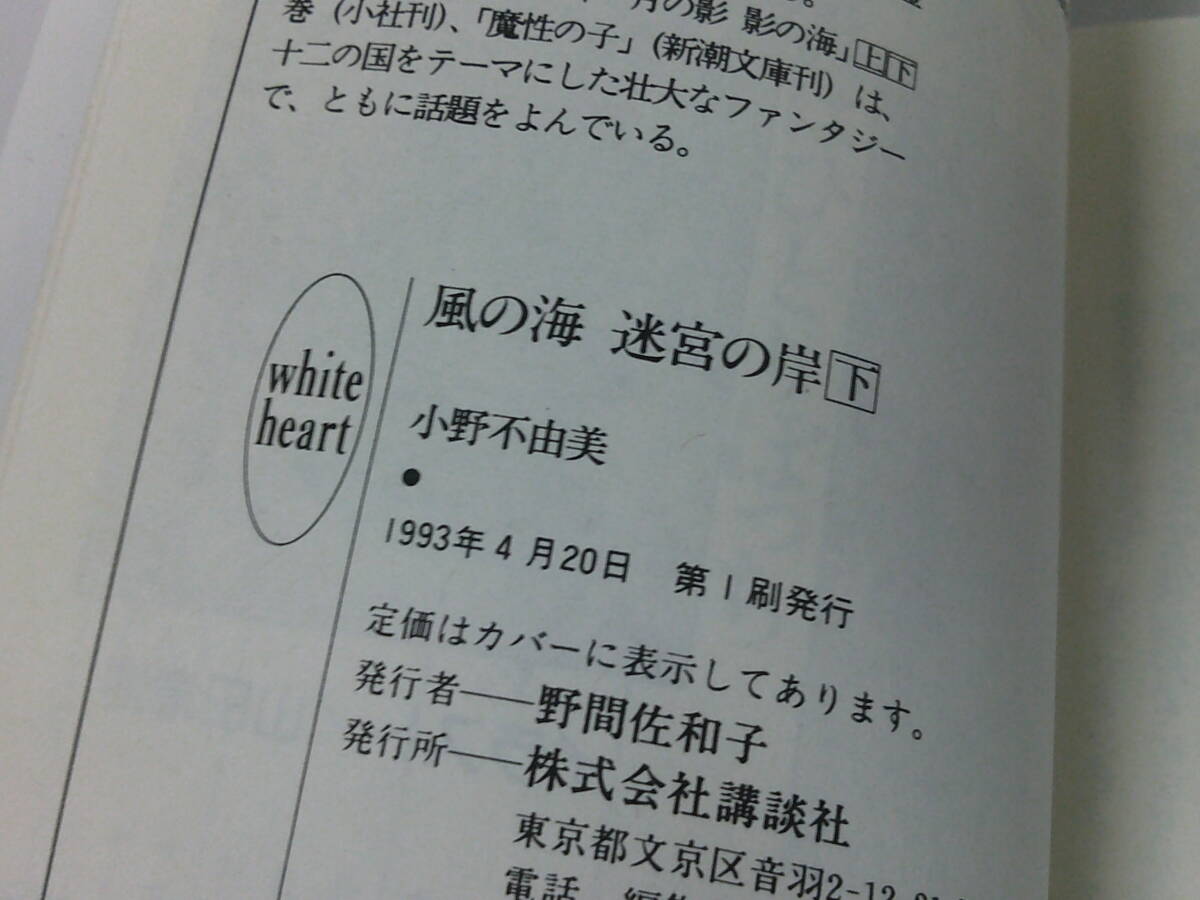 月の影 影の海」上下
巻（小社刊）、「魔性の子」（新潮文庫刊）は、
十二の国をテーマにした壮大なファンタジー
で、ともに話題をよんでいる。
white
heart
風の海 迷宮の岸 下
小野不由美
●
1993年4月20日 第1刷発行
定価はカバーに表示してあります。
発行者――野間佐和子
発行所――株式会社講談社
東京都文京区音羽2-12
電話